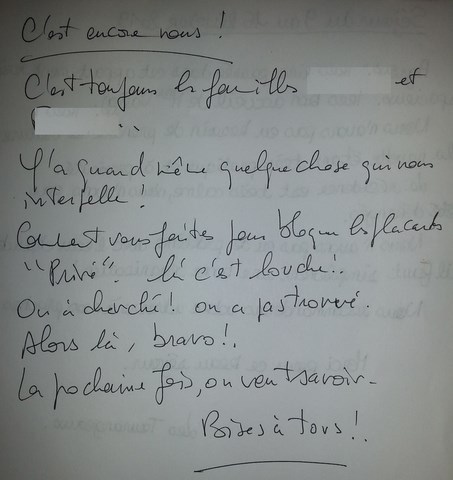 C'est encore nous !
C'est toujours les familles et
Y'a quand même quelque chose qui nous
interpelle !
Comment vous faites pour bloquer les placards
"Privé". là c'est louche !.
On à cherché ! on a pas trouvé.
Alors là, bravo !.
La pochaine fois, on veut savoir.
Bises à tous !.